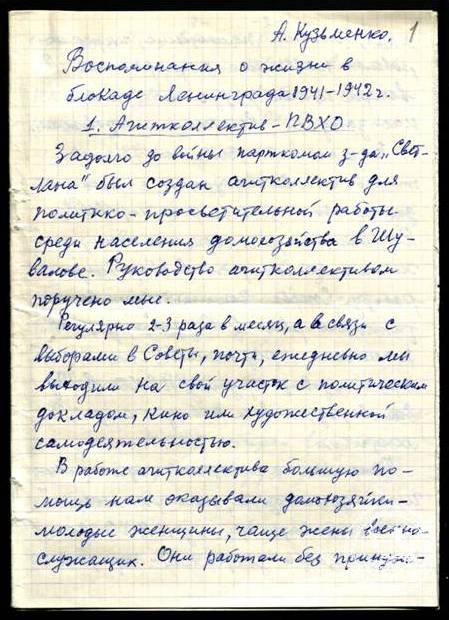 А. Кузьменко. 1
Воспоминания о жизни в
блокаде Ленинграда 1941-1942 г.
1. Агитколлектив - ПВХО
Задолго до войны парткомом з-да „Свет-
лана" был создан агитколлектив для
политико-просветительной работы
среди населения домохозяйства в Шу-
валове. Руководство агитколлективом
поручено мне.
Регулярно 2-3 раза в месяц, а в связи с
выборами в Советы, почти, ежедневно мы
выходили на свой участок с политическим
докладом, кино или художественной
самодеятельностью.
В работе агитколлектива большую по-
мощь нам оказывали домохозяйки-
молодые женщины, чаще жены военно-
служащих. Они работали без принуж-